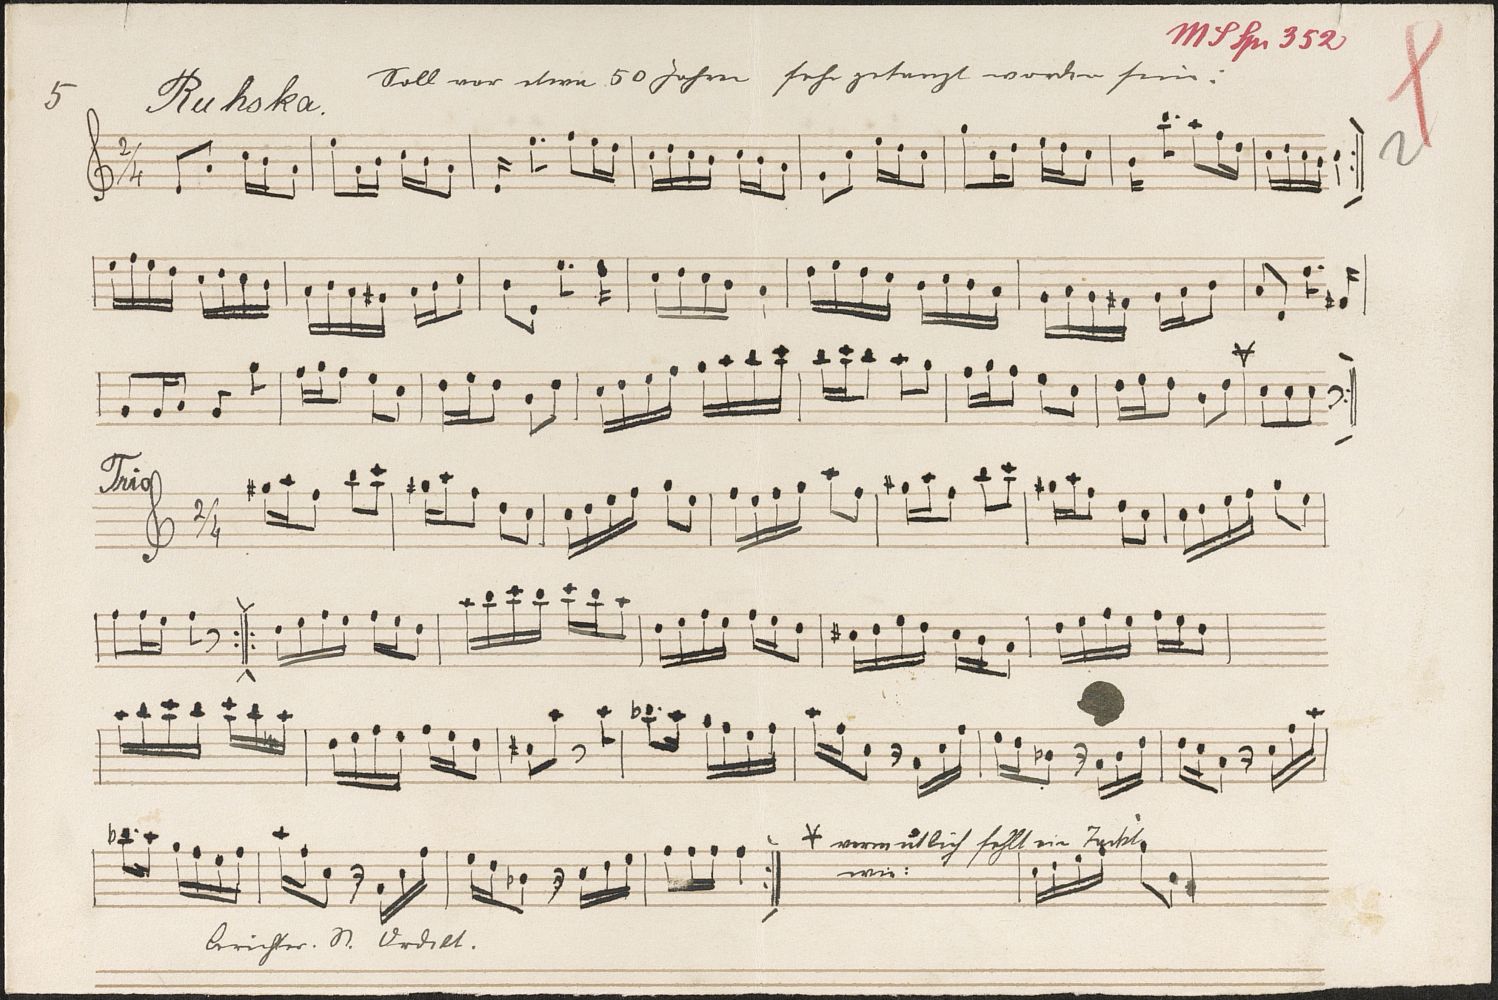 MS Spr 352
5 Ruhska. Soll vor etwa 50 Jahren sehr getanzt worden sein:
2
2/4
Trio
2/4
vermutlich fehlt ein Takt,
wie:
berichter. N.